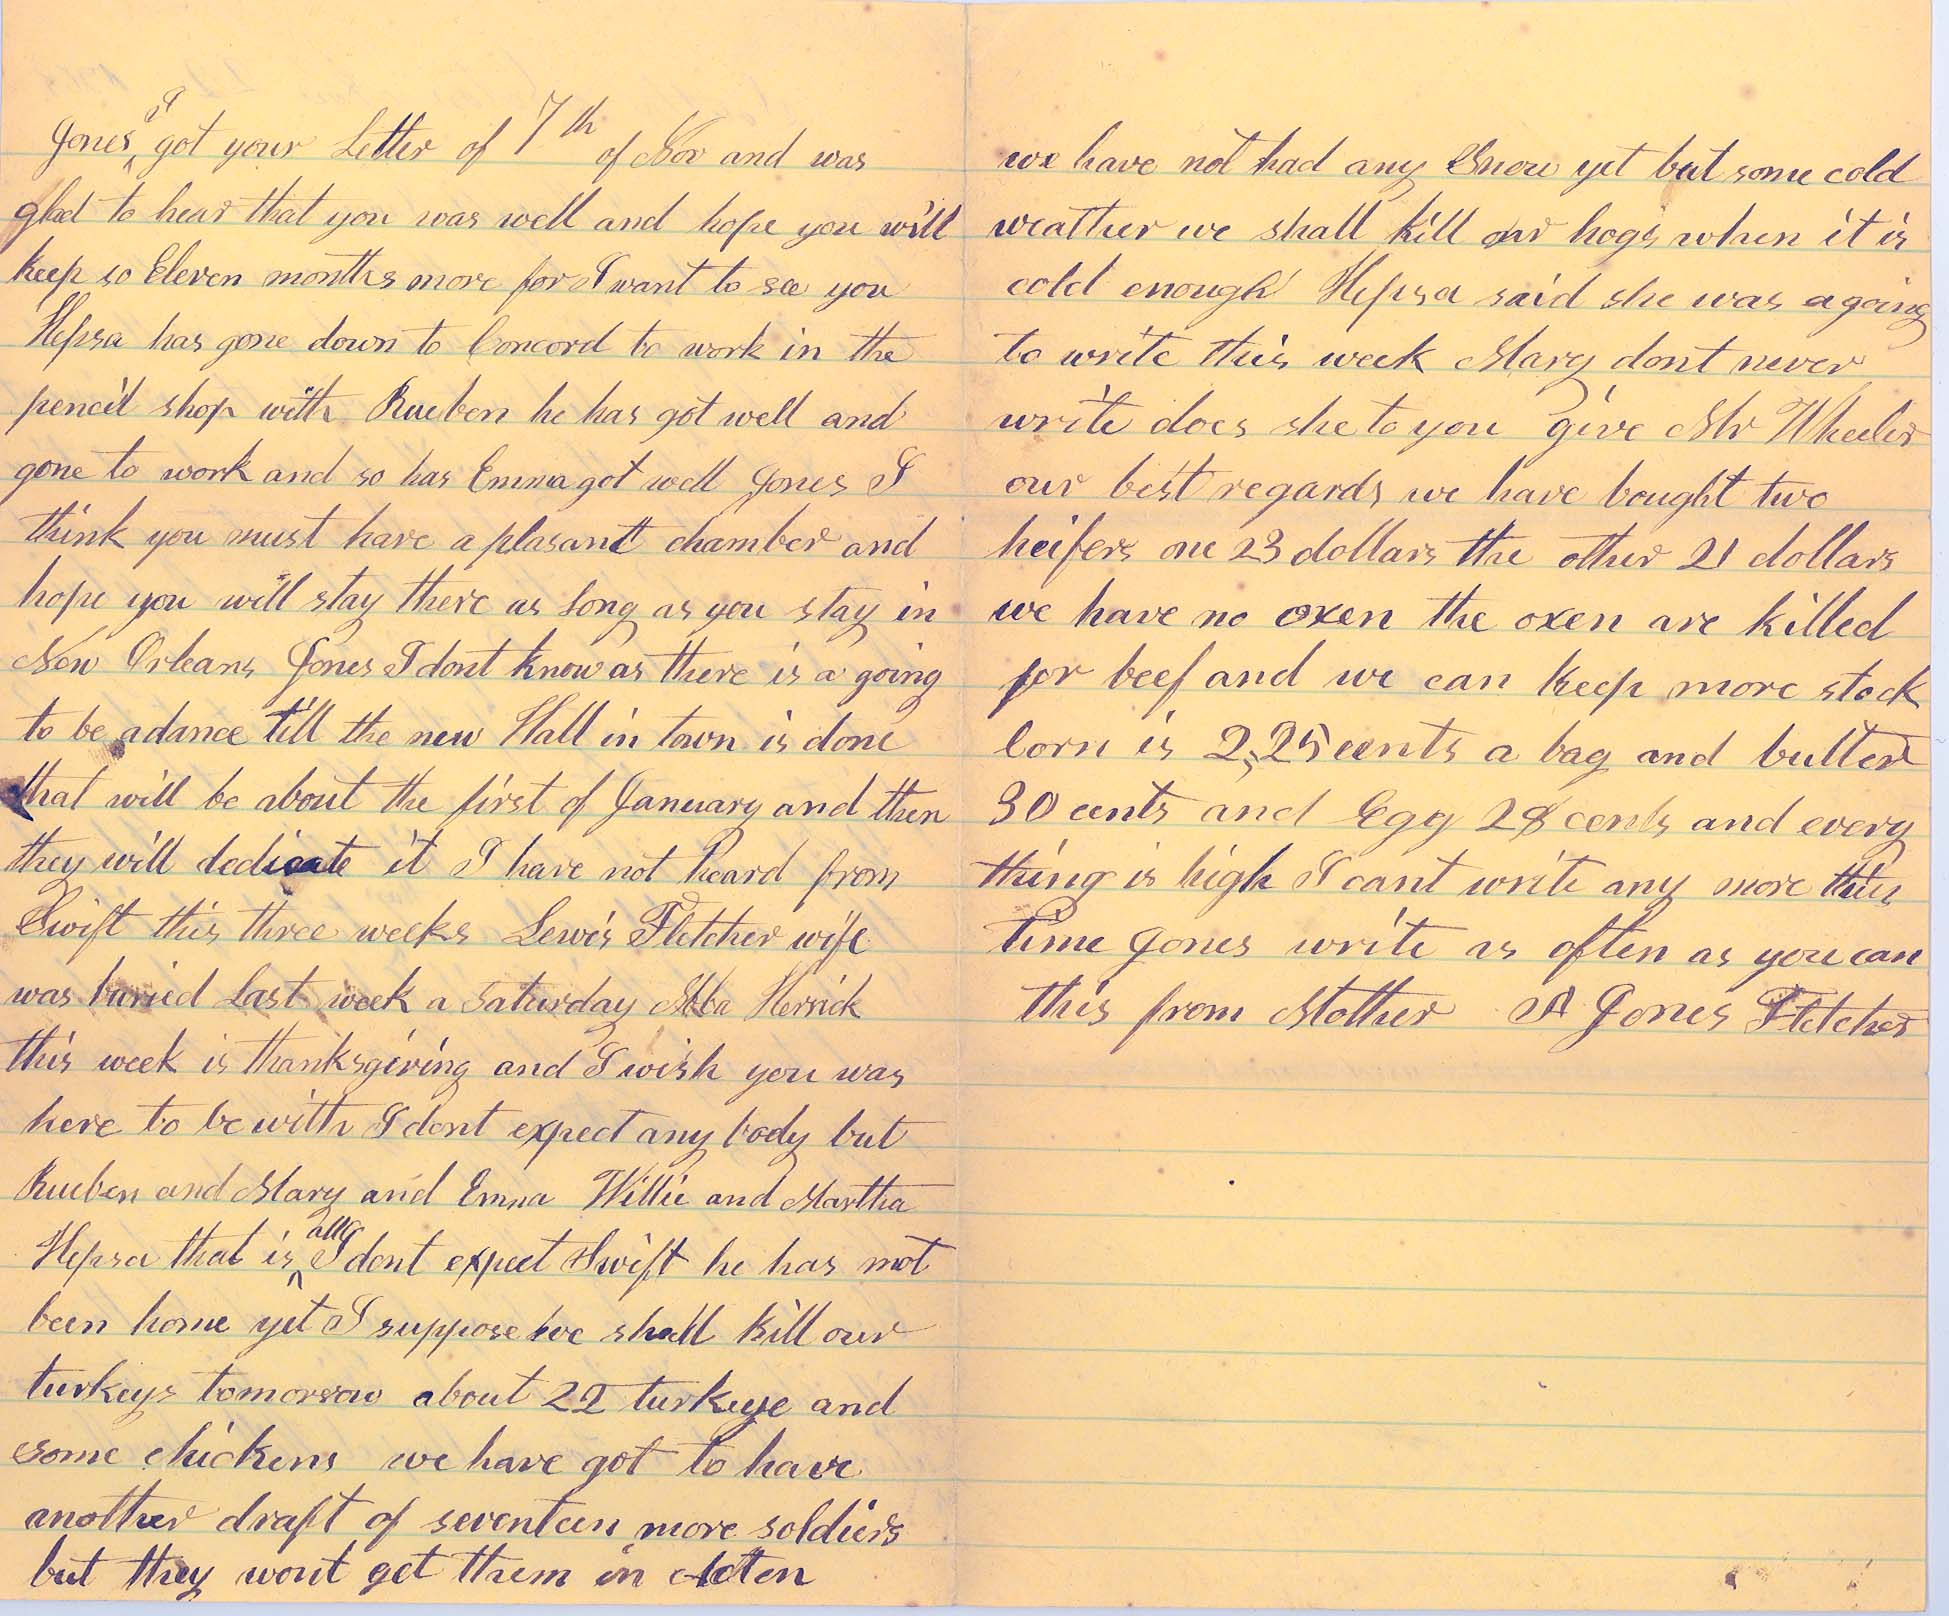 Jones I got your Letter of 7th of Nov and was
glad to hear that you was well and hope you will
keep so Eleven months more for I want to see you
Hepsa has gone down to Concord to work in the
pencil shop with Rueben he has got well and
gone to work and so has Emma got well Jones I
think you must have a plasant chamber and
hope you will stay there as long as you stay in
New Orleans Jones I dont know as there is a going
to be a dance till the new Hall in town is done
that will be about the first of January and then
they will dedicate it I have not heard from
Swift this three weeks Lewis Fletcher wife
was buried Last week a Saturday Abba Herrick
this week is thanksgiving and I wish you was
here to be with I dont expect any body but
Rueben and Mary and Emma Willie and Martha
Hepsa that is all I dont expect Swift he has not
been home yet I suppose we shall kill our
turkeys tomorrow about 22 turkeye and
some chickens we have got to have
another draft of seventeen more soldiers
but they wont get them in Acten
we have not had any Snow yet but some cold
weather we shall kill our hogs when it is
cold enough Hepsa said she was a going
to write this week Mary dont never
write does she to you give Mr Wheeler
our best regards we have bought two
heifers one 23 dollars the other 21 dollars
we have no oxen the oxen are killed
for beef and we can keep more stock
Corn is 2,25 cents a bag and butter
30 cents and Egg 28 cents and every
thing is high I cant write any more this
time Jones write as often as you can
this from Mother A Jones Fletcher